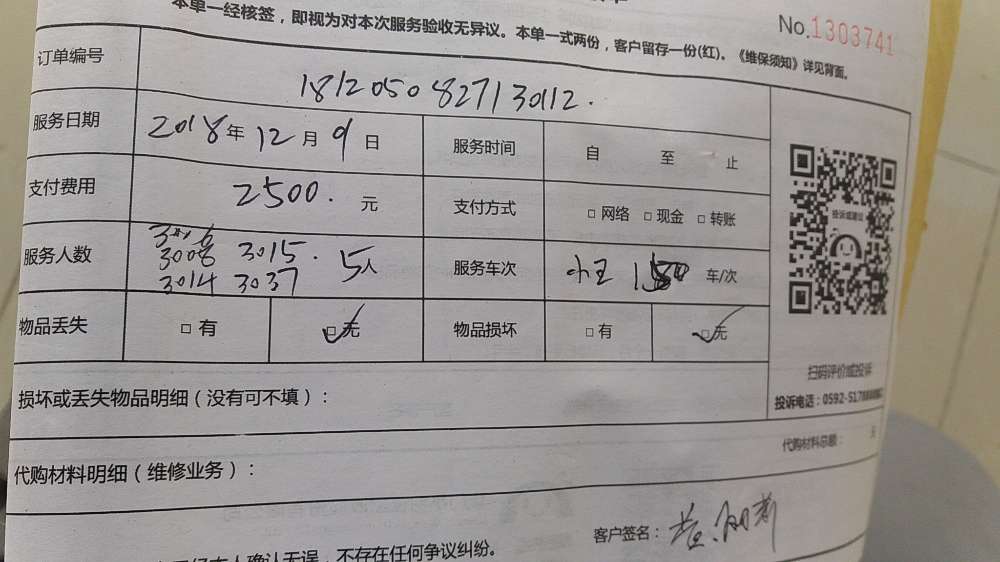 本单一经核签，即视为对本次服务验收无异议。本单一式两份，客户留存一份(红)。《维保须知》详见背面。
No.1303741
订单编号 181205082713012.
服务日期 2018年12月9日 服务时间 自 至 止
支付费用 2500. 元 支付方式 □ 网络 □ 现金 □ 转账
服务人数 3008 3015. 5人
3014 3037
服务车次 小王 车/次
物品丢失 □ 有 □ 无 物品损坏 □ 有 □ 无
投诉或建议
扫码评价或投诉
损坏或丢失物品明细（没有可不填）：
投诉电话：0592-5178
代购材料总额： 元
代购材料明细（维修业务）：
客户签名：
本人确认无误，不存在任何争议纠纷。